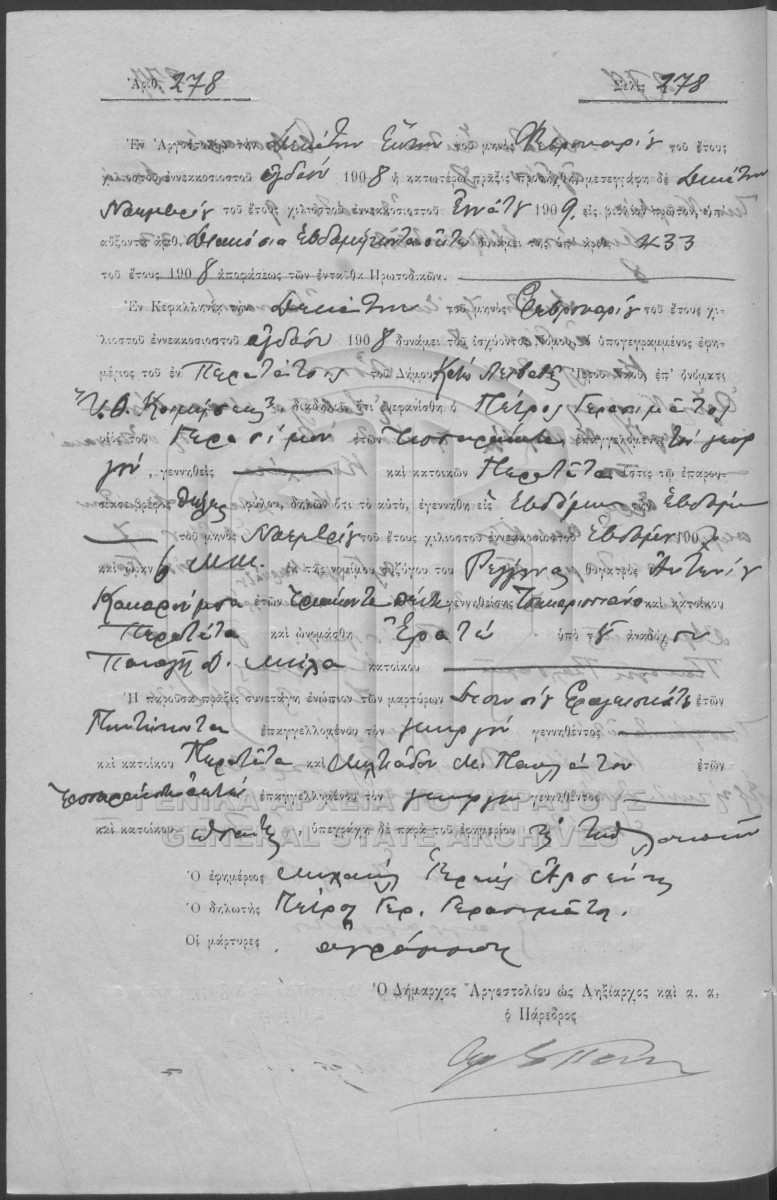 Ἀριθ. 278 Σελὶς 278
Ἐν Ἀργοστολίῳ τὴν Δεκάτην Ἕκτην τοῦ μηνὸς Φεβρουαρίου τοῦ ἔτους
χιλιοστοῦ ἐννεακοσιοστοῦ ὀγδόου 1908 ἡ κατωτέρω πρᾶξις προσήχθη, μετεγράφη δὲ Δεκάτην
Νοεμβρίου τοῦ ἔτους χιλιοστοῦ ἐννεακοσιοστοῦ Ἐννάτου 1909 εἰς βιβλίον πρῶτον, ὑπ'
αὔξοντα ἀριθ. Διακόσια Ἑβδομήκοντα ὀκτὼ δυνάμει τῆς ὑπ' ἀριθ. 233
τοῦ ἔτους 1908 ἀποφάσεως τῶν ἐνταῦθα Πρωτοδικῶν.
Ἐν Κεφαλληνίᾳ τὴν Δεκάτην τοῦ μηνὸς Φεβρουαρίου τοῦ ἔτους χι-
λιοστοῦ ἐννεακοσιοστοῦ ὀγδόου 1908 δυνάμει τοῦ ἰσχύοντος Νόμου, ὁ ὑπογεγραμμένος ἐφη-
μέριος τοῦ ἐν Περατάτοις τοῦ Δήμου Κάτω Λειβαθοῦς Ἱεροῦ Ναοῦ ἐπ' ὀνόματι
Κοιμήσεως, διαδηλῶ, ὅτι ἐνεφανίσθη ὁ Πέτρος Γερασιμᾶτος
υἱὸς τοῦ Γερασίμου ἐτῶν τεσσαράκοντα ἐπαγγελόμενος τὸν γεωρ
γόν, γεννηθεὶς καὶ κατοικῶν Περατᾶτα ὅστις τῷ ἐπαρου-
σίασε βρέφος θήλεος φύλου, δηλῶν ὅτι τὸ αὐτό, ἐγεννήθη εἰς Ἑβδόμην τοῦ Ἑβδόμην
τοῦ μηνὸς Νοεμβρίου τοῦ ἔτους χιλιοστοῦ ἐννεακοσιοστοῦ Ἑβδόμου 1907
καὶ ὥραν 6 Μ.Μ. ἐκ τῆς νομίμου συζύγου του Ρεγγίνας θυγατρὸς Ἀντωνίου
ἐτῶν τριάκοντα πέντε γεννηθείσης καὶ κατοίκου
Περατᾶτα καὶ ὠνομάσθη Ἐρατώ ὑπὸ τοῦ ἀναδόχου
Παναγῆ κατοίκου
Ἡ παροῦσα πρᾶξις συνετάγη ἐνώπιον τῶν μαρτύρων Διονυσίου ἐτῶν
Πεντήκοντα ἐπαγγελλομένου τὸν γεωργόν γεννηθέντος
καὶ κατοίκου Περατᾶτα καὶ Μιλτιάδου Μ. Παυλάτου ἐτῶν
τεσσαράκοντα ὀκτώ ἐπαγγελλομένου τὸν γεωργόν γεννηθέντος
καὶ κατοίκου , ὑπεγράφη δὲ παρὰ τοῦ ἐφημερίου
Ὁ ἐφημέριος Μιχαὴλ Ἱερεὺς Ἀρσένης
Ὁ δηλωτὴς Πέτρος Γερ. Γερασιμᾶτος.
Οἱ μάρτυρες. ἀγράμματοι
Ὁ Δήμαρχος Ἀργοστολίου ὡς Ληξίαρχος καὶ α. α,
ὁ Πάρεδρος
ΓΕΝΙΚΑ ΑΡΧΕΙΑ ΤΟΥ ΚΡΑΤΟΥΣ
GENERAL STATE ARCHIVES